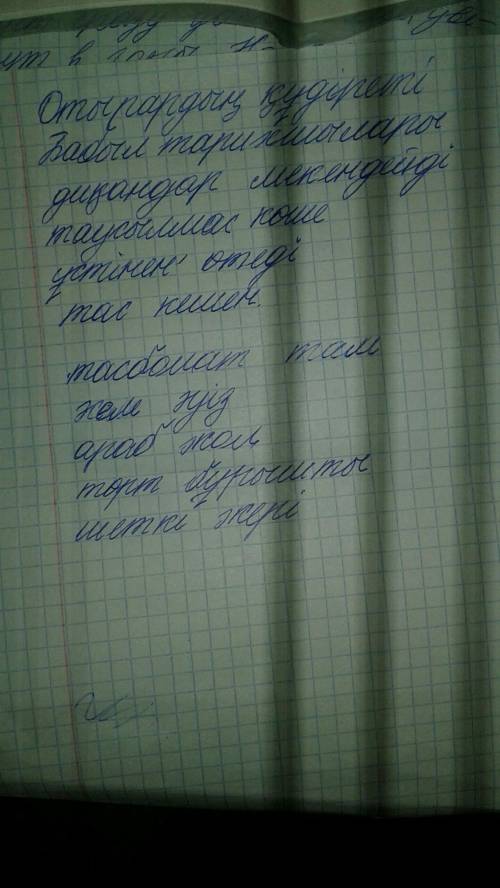 Отырардың құдіреті
Бабыл тарихшылары
диқандар мекендейді
таусылмас көше
үстінен өтеді
тас кешен.
тасбомат там
жем эгіз
араб жол
төрт бұрышты
шеткі жері